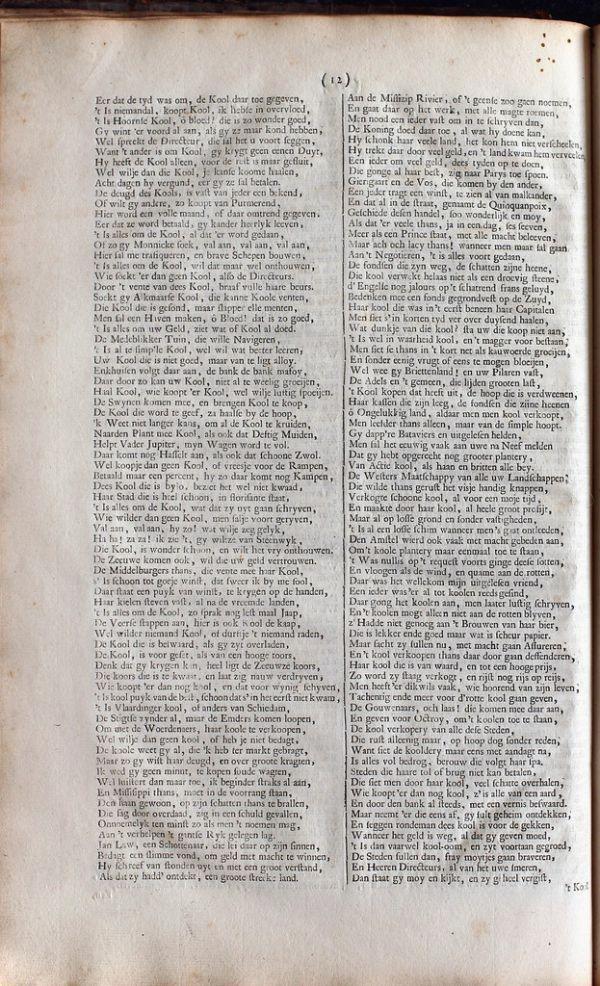 (12)
Eer dat de tyd was om, de Kool daar toe gegeven,
't Is niemandal, koopt Kool, ik hebse in overvloed,
't Is Hoornse Kool, ô bloed! die is zo wonder goed,
Gy wint 'er voord al aan, als gy ze maar kond hebben,
Wel spreekt de Directeur, die sal het u voort seggen,
Want 't ander is om Kool, gy krygt geen eenen Duyt,
Hy heeft de Kool alleen, voor de rest is maar gesluit,
Wel wilje dan die Kool, je kanse koome haalen,
Acht dagen hy vergund, eer gy ze sal betalen.
De deugd des Kools, is vast van jeder een bekend,
Of wilt gy andere, zo koopt van Purmerend,
Hier word een volle maand, of daar omtrend gegeven.
Eer dat ze word betaald, gy kander heerlyk leeven,
't Is alles om de Kool, al dat 'er word gedaan,
Of zo gy Monnicke soek, val aan, val aan, val aan,
Hier sal me trafiqueren, en brave Schepen bouwen,
't Is alles om de Kool, wil dat maar wel onthouwen,
Wie soekt 'er dan geen Kool, also de Directeurs.
Door 't vente van dees Kool, braaf vulle haare beurs.
Soekt gy Alkmaarse Kool, die kanne Koole venten,
Die Kool die is gesond, maar slapper elle menten,
Men sal een Haven maken, ô Bloed! dat is zo goed,
't Is alles om uw Geld, ziet wat of Kool al doed.
De Medeblikker Tuin, die wille Navigeren,
't Is al te simp'le Kool, wel wil wat beter leeren,
Uw Kool die is niet goed, maar van te ligt alloy.
Enkhuisen volgt daar aan, de bank de bank mafoy,
Daar door zo kan uw Kool, niet al te weelig groeijen,
Haal Kool, wie koopt 'er Kool, wel wilje lustig spoeijen.
De Swynen komen mee, en brengen Kool te koop,
De Kool die word te geef, za haalse by de hoop,
'k Weet niet langer kans, om al de Kool te kruiden,
Naarden Plant mee Kool, als ook dat Deftig Muiden,
Helpt Vader Jupiter, myn Wagen word te vol.
Daar komt nog Hasselt aan, als ook dat schoone Zwol.
Wel koopje dan geen Kool, of vreesje voor de Rampen,
Betaald maar een percent, hy zo daar komt nog Kampen,
Dees Kool die is bylo, bezet het wel niet kwaad,
Haar Stad die is heel schoon, in florisante staat,
't Is alles om de Kool, wat dat zy uyt gaan schryven,
Wie wilder dan geen Kool, men salje voort geryven,
Val aan, val aan, hy zo! wat wilje zeg gelyk,
Ha ha! za za! ik zie 't, gy wiltze van Steenwyk,
Die Kool, is wonder schoon, en wilt het vry onthouwen.
De Zeeuwe komen ook, wil die uw geld vertrouwen.
De Middelburgers thans, die vente mee haar Kool,
's Is schoon tot goeje winst, dat sweer ik by me sool,
Daar staat een puyk van winst, te krygen op de handen,
Haar kielen steven vast, al na de vreemde landen,
't Is alles om de Kool, zo sprak nog lest maal Jaap,
De Veerse stappen aan, hier is ook Kool de kaap,
Wel wilder niemand Kool, of durfje 't niemand raden,
De Kool die is beswaard, als gy zyt overladen,
De Kool, is voor geset, als van een hooge toors,
Denk dat gy krygen kan, heel ligt de Zeeuwze koors,
Die koors die is te kwaad, en laat zig nauw verdryven,
Wie koopt 'er dan nog kool, en dat voor wynig schyven,
't Is kool puyk van de bank, schoon dat s' in het eerst niet kwam,
't Is Vlaardinger kool, of anders van Schiedam,
De Stigtse zynder al, maar de Emders komen loopen,
Om met de Woerdeneers, haar koole te verkoopen,
Wel wilje dan geen kool, of heb je niet bedagt,
De koole weet gy al, die 'k heb ter markt gebragt,
Maar zo gy wist haar deugd, en over groote kragten,
Ik wed gy geen minut, te kopen soude wagten,
Wel luistert dan maar toe, ik beginder straks al aan,
En Missisippi thans, moet in de voorrang staan,
Den staan gewoon, op zijn schatten thans te brallen,
Die sag door overdaad, zig in een schuld gevallen,
Onnoemelyk ten minst zo als men 't noemen mag,
Aan 't verhelpen 't gantse Ryk gelegen lag.
Jan Law, een Schottenaar, die lei daar op zijn sinnen,
Bedagt een slimme vond, om geld met macht te winnen,
Hy schreef van stonden uyt en met een groot verstand,
Als dat zy hadd' ontdekt, een groote streeke land.
Aan de Missizip Rivier, of 't geense zoo gaen noemen,
En gaat daar op het werk, met alle magte roemen,
Men nood een ieder vast om in te schryven dan,
De Koning doed daar toe, al wat hy doene kan,
Hy schonk haar veele land, het kon hem niet verscheelen,
Hy trekt daar door veel geld, en 't land kwam hem verveelen
Een ieder om veel geld, dees tyden op te doen,
Die gonge al haar best, zig naar Parys toe spoen.
Gierigaart en de Vos, die komen by den ander,
Een jeder tragt een winst, te zien al van malkander,
En dat al in de straat, genaamt de Quinquanpoix,
Geschiede desen handel, soo wonderlijk en moy,
Als dat 'er veele thans, ja in een dag, ses seeven,
Meer als een Prince staat, met alle macht beleeven,
Maar ach och lacy thans! wanneer men maar sal gaan
Aan 't Negotieren, 't is alles voort gedaan,
De fondsen die zyn weg, de schatten zijne heene,
Die kool verwekt helaas niet als een droevig steene,
d'Engelse nog jalours op 't schatrend frans geluyd,
Bedenken mee een fonds gegrondvest op de Zuyd,
Haar kool die was in 't eerst beneen haar Capitalen
Men siet s'in korten tyd ver over duysend haalen,
Wat dunkje van die kool? sta uw die koop niet aan,
't Is wel in waarheid kool, en 't magger voor bestaan,
Men siet se thans in 't kort net als kauwoerde groeijen,
En sonder eenig vrugt of eens te mogen bloeijen,
Wel wee gy Briettenland! en uw Pilaren vast,
De Adels en 't gemeen, die lijden grooten last,
't Kool kopen dat heeft uit, de hoop die is verdweenen,
Haar kassen die zijn leeg, de fondsen die zijne heenen
ô Ongelukkig land, aldaar men men kool verkoopt,
Men leefder thans alleen, maar van de simple hoopt.
Gy dapp're Bataviers en uitgelesen helden,
Men sal het eeuwig vaak aan uwe na Neef melden
Dat gy hebt opgerecht nog grooter plantery,
Van Actie kool, als haan en britten alle bey.
De Westers Maatschappy van alle uw Landschappen,
Die wilde thans geruft het visje handig knappen,
Verkogte schoone kool, al voor een moje tijd,
En maakte door haar kool, al heele groot profijt,
Maar al op losse grond en sonder vastigheden,
't Is al een losse schim wanneer men 't gaat ontleeden,
Den Amstel wierd ook vaak met macht gebeden aan,
Om 't koole plantery maar eenmaal toe te staan,
't Was nullis op 't request voorts ginge deese fotten,
En vloogen als de wind, en quame aan de rotten,
Daar was het wellekom mijn uitgelesen vriend,
Een ieder was'er al tot koolen reeds gesind,
Daar gong het koolen aan, men laater lustig schryven,
En 't koolen mogt allen niet aan de rotten blyven,
Z' Hadde niet genoeg aan 't Brouwen van haar bier,
Die is lekker ende goed maar wat is scheur papier.
Maar sacht zy sullen nu, met macht gaan Assureren,
En 't kool verkoopen thans daar door gaan dessenderen,
Haar kool die is van waard, en tot een hooge prijs,
Zo word zy staag verkogt, en rijst nog rijs op reijs,
Men heeft 'er dikwils vaak, wie hoorend van zijn leven,
Tachentig ende meer voor d'rotte kool gaan geven,
De Gouwenaars, och laas! die komen mee daar aan,
En geven voor Octroy, om 't koolen toe te staan,
De kool verkopery van alle dese Steden,
Die rust alleenig maar, op hoop dog sonder reden,
Want siet de kooldery maar eens met aandagt na,
Is alles vol bedrog, berouw die volgt haar spa.
Steden die haare tol of brug niet kan betalen,
Die siet men door haar kool, veel schatte overhalen,
Wie koopt'er dan nog kool, z'is alle van een aard,
En door den bank al steeds, met een vernis beswaard.
Maar neemt 'er die eens af, gy sult geheim ontdekken,
En seggen rondeman dees kool is voor de gekken,
Wanneer het geld is weg, al dat gy geven moed,
't Is dan vaarwel kool-oom, en zyt voortaan gegroed,
De Steden sullen dan, fray moytjes gaan braveren,
En Heeren Directeurs, al van het uwe smeren,
Dan staat gy moy en kijkt, en zy geheel vergist,
't Kool